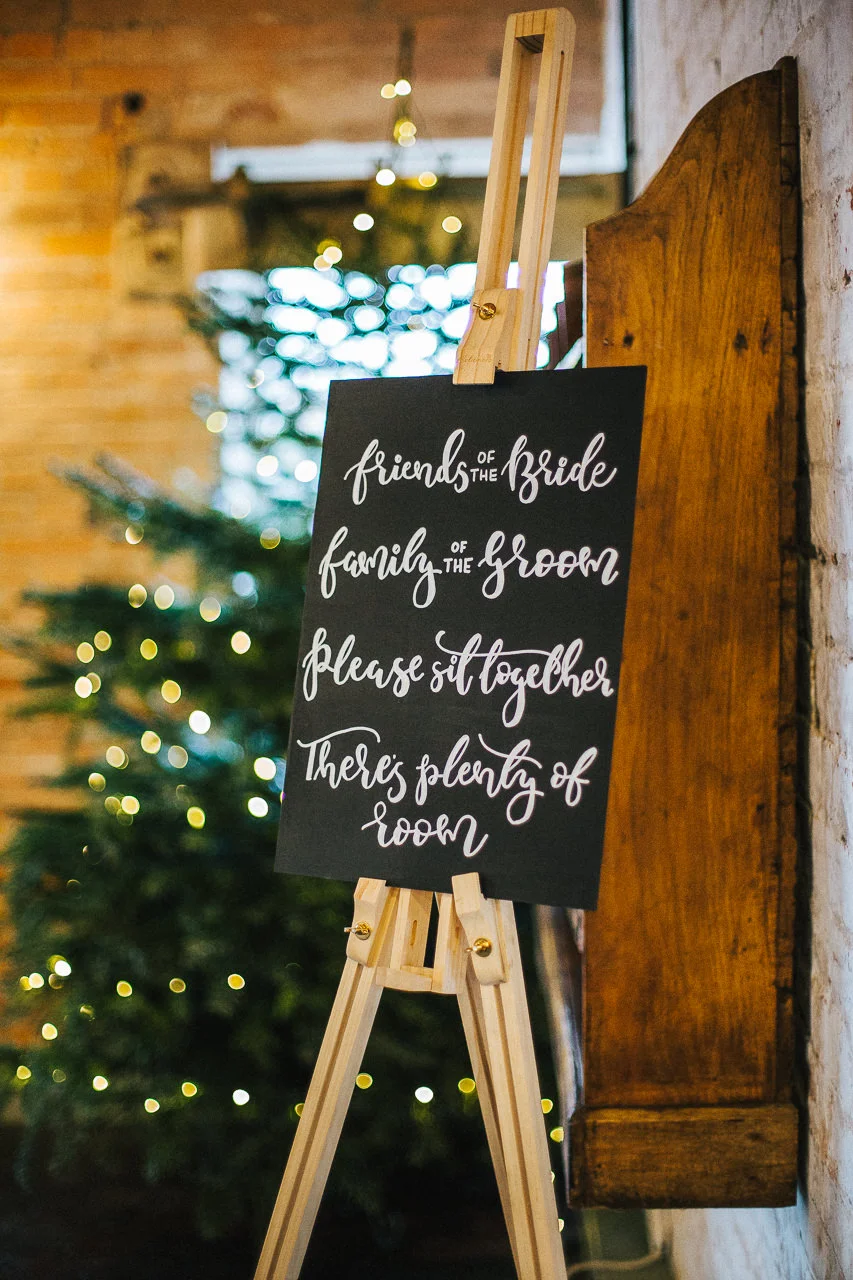 friends OF THE Bride
family OF THE Groom
Please sit together
There's plenty of
room